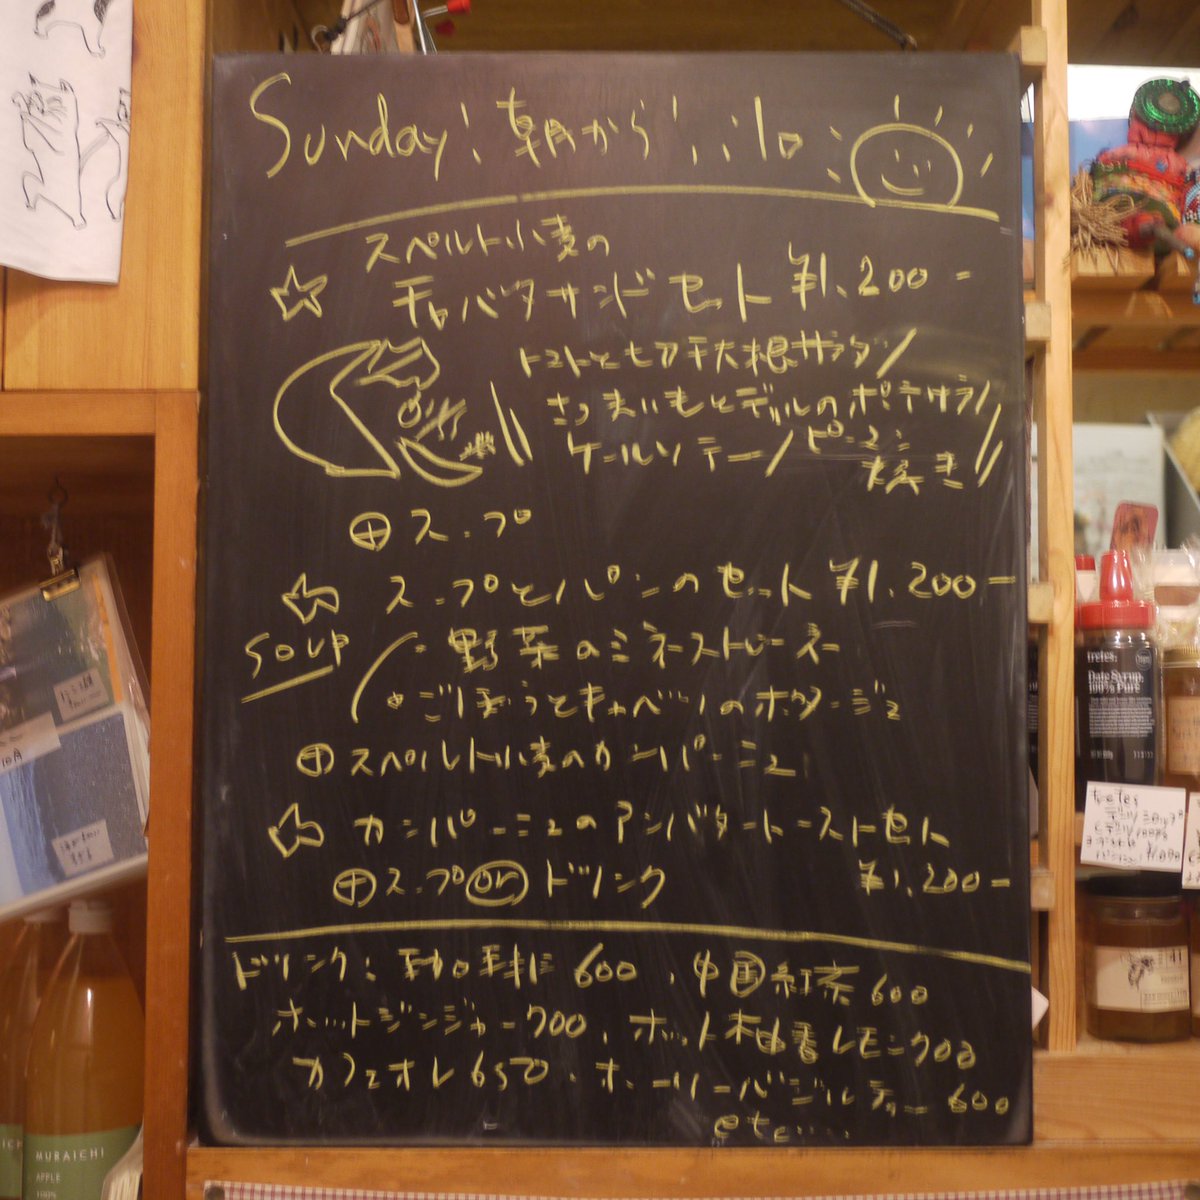 Sunday! 朝から!
スペルト小麦の
チャパタサンドセット ¥1,200-
トマトと大根サラダ/
さつまいもとディルのポテサラ/
ケールソテー/ピーマン
焼き
⊕スープ
スープとパンのセット ¥1,200-
soup
・野菜のミネストローネ
・ごぼうとキャベツのポタージュ
⊕スペルト小麦のカンパーニュ
カンパーニュのアンバタートーストセット
⊕スープ or ドリンク ¥1,200-
ドリンク: 600、中国紅茶600
ホットジンジャー700、ホット柚香レモン700
カフェオレ650、ホーリーバジルティー600
etc....
Date Syrup
100% Pure
MURAICHI
APPLE
100%